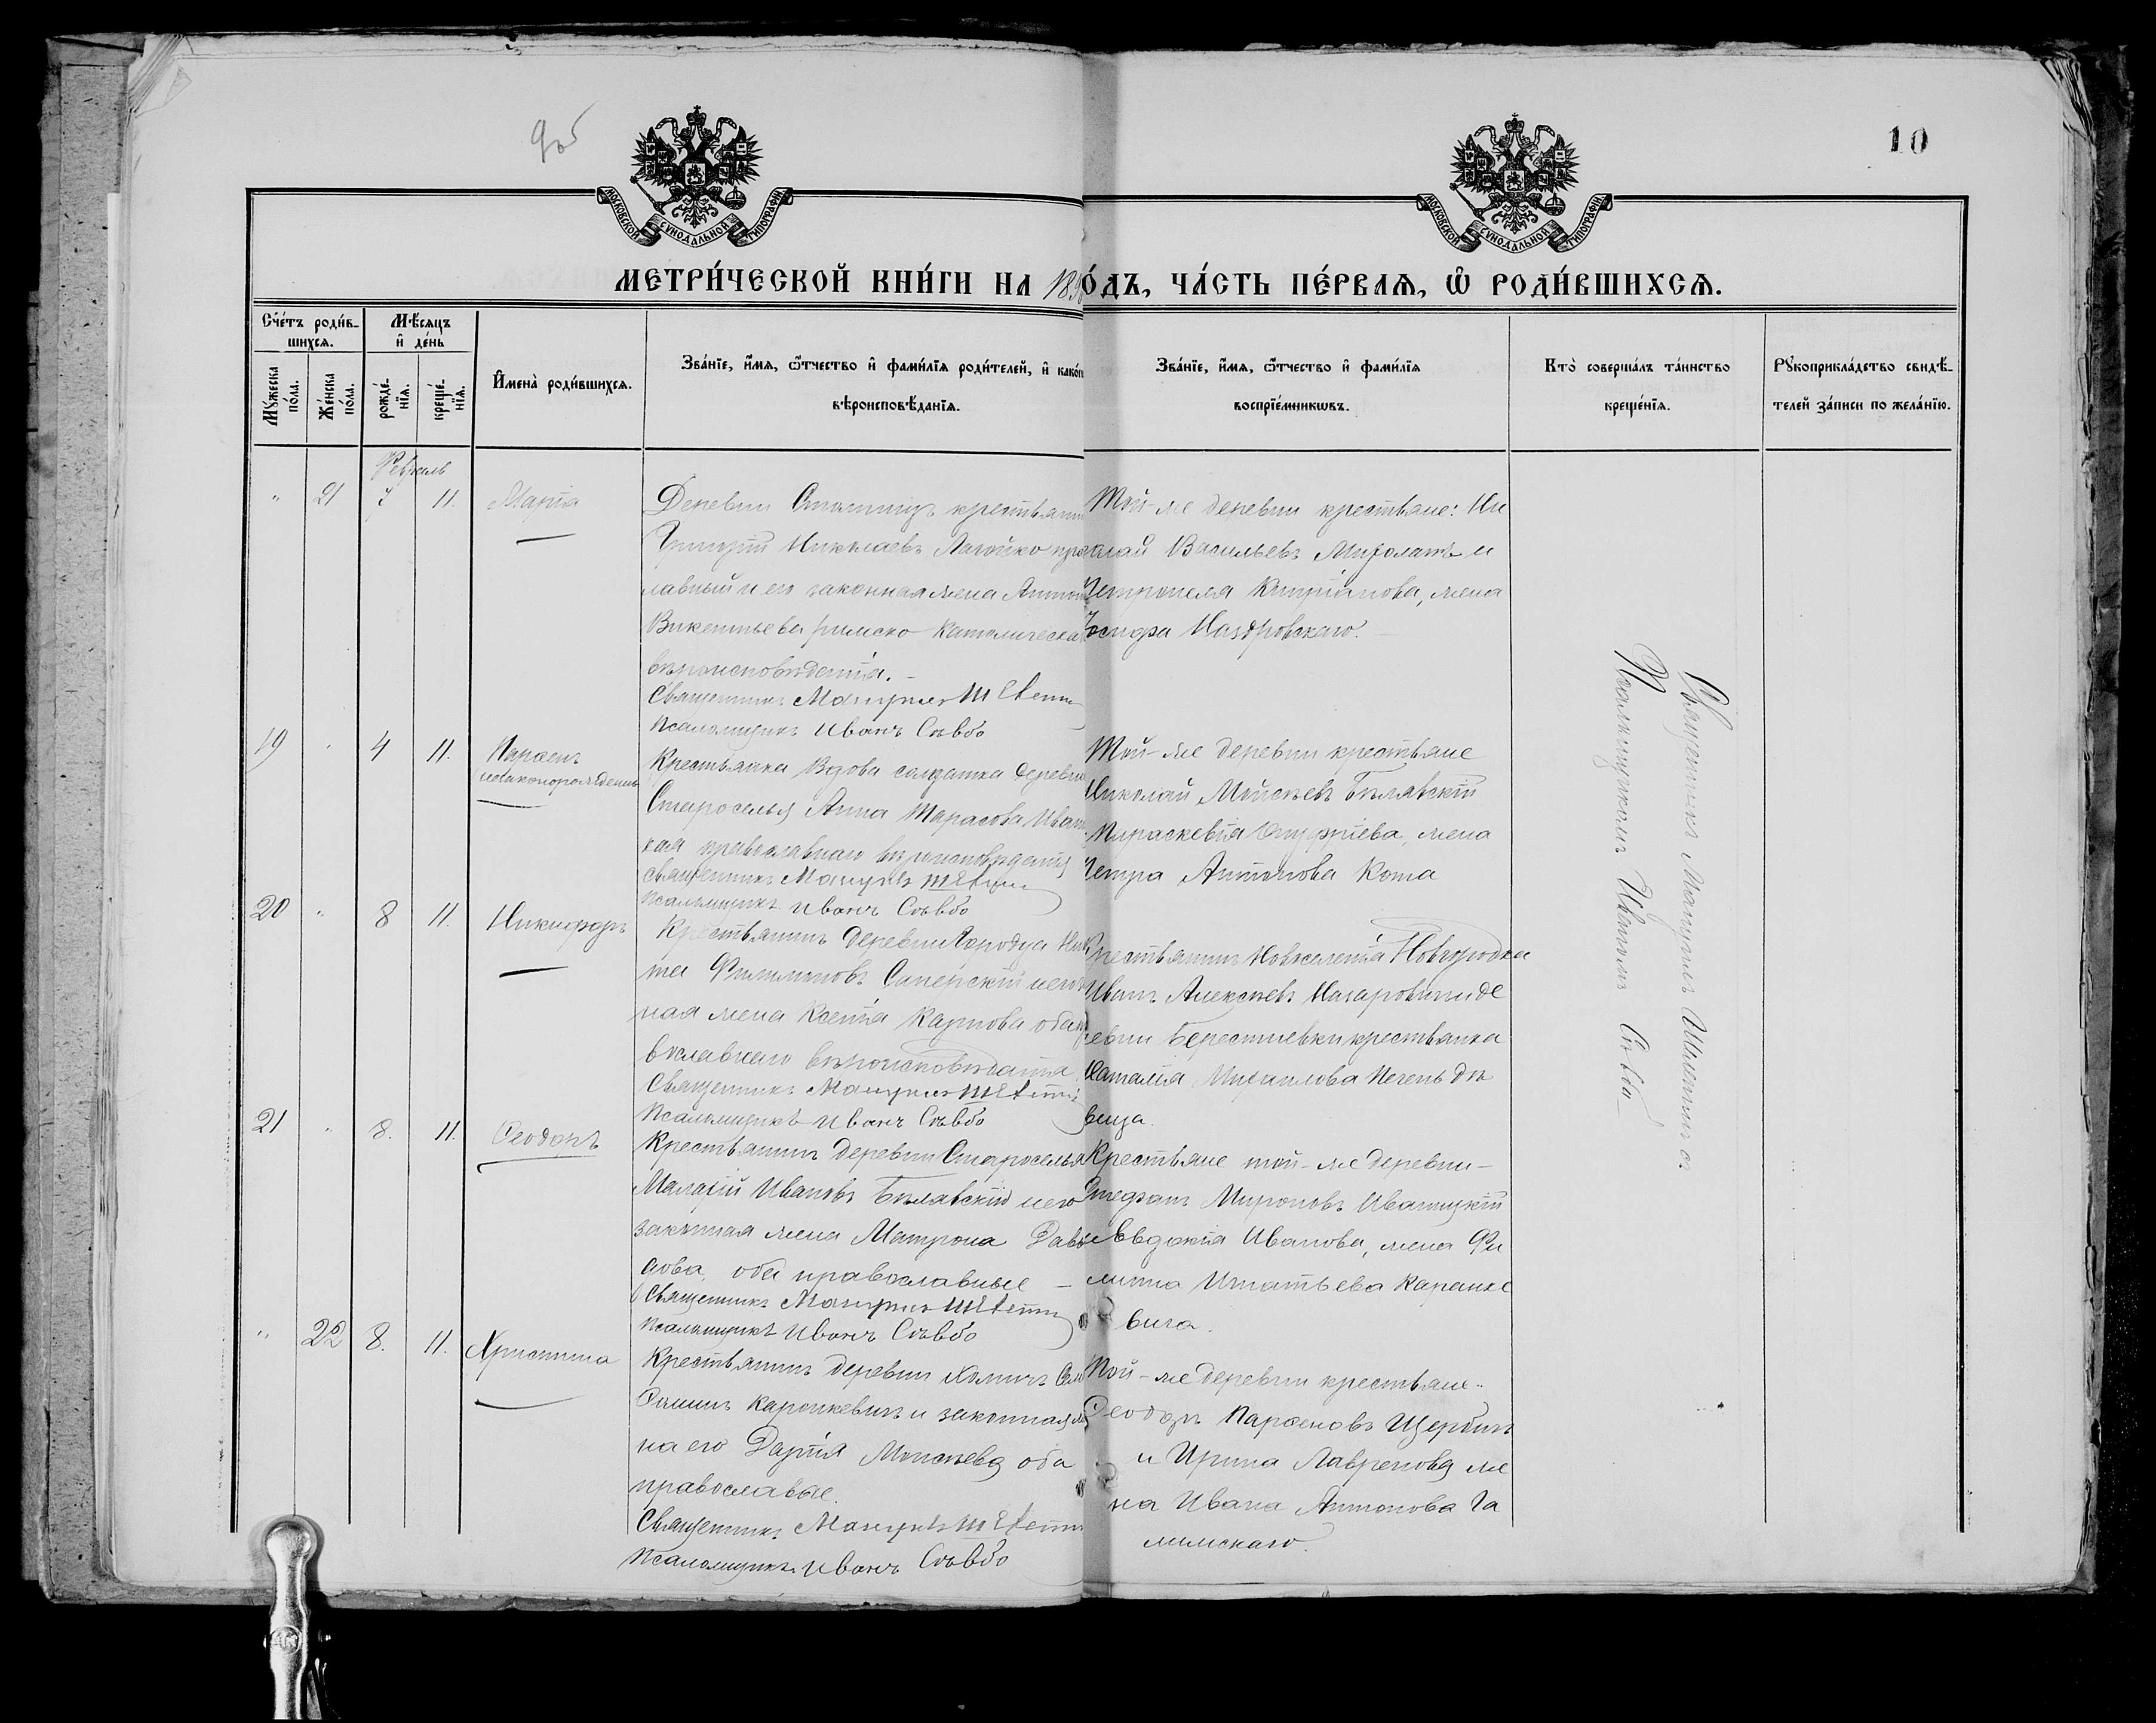 9об
10
МОСКОВСКОЙ СѴНОДАЛЬНОЙ ТИПОГРАФІИ
МОСКОВСКОЙ СѴНОДАЛЬНОЙ ТИПОГРАФІИ
МЕТРИ́ЧЕСКОЙ КНИ́ГИ НА 189 О́ДЪ, ЧА́СТЬ ПЕ́РВАѦ, Ѡ҆ РОДИ́ВШИХСѦ.
Сче́тъ роди́в-
шихсѧ.
Мꙋ́жеска по́ла.
Же́нска по́ла.
Мѣ́сѧцъ
и҆ де́нь
рожде́-нїѧ.
креще́-нїѧ.
И҆мена̀ роди́вшихсѧ.
Зва́нїе, и҆́мѧ, ѻ҆́тчество и҆ фами́лїѧ роди́телей, и҆ како́
вѣроисповѣ́данїѧ.
Зва́нїе, и҆́мѧ, ѻ҆́тчество и҆ фами́лїѧ
воспрїе́мникѡвъ.
Кто̀ соверша́лъ та́инство
креще́нїѧ.
Рꙋкоприкла́дство свидѣ́-
телей за́писи по жела́нїю.
Февраль
" 21 7 11. Марія
Деревни крестьянин
Григорій Николаевъ Лагойко пра
лавный и его законная жена Антон
Викентьева римско Католическа
вѣроисповѣданія.
Священникъ Мануилъ
Псаломщикъ Иванъ Сѣвбо
Той-же деревни крестьяне: Ни
колай Васильевъ Михолапъ и
Петронеля Кипріанова, жена
Іосифа Наздровскаго.
19 " 4 11. Парѳенъ
незаконорожденъ
Крестьянка Вдова солдатка деревни
Староселья Анна Тарасова Иван
кая православнаго вѣроисповѣданія
Священникъ Мануилъ
Псаломщикъ Иванъ Сѣвбо
Той-же деревни крестьяне
Николай Мойсѣевъ Бѣлявскій
Параскевія Онуфріева, жена
Петра Антонова Кота
20 " 8 11. Никифоръ
Крестьянинъ деревни Городца Ник
та Филимоновъ Саперскій и его
ная жена Ксенія Карпова оба
вославнаго вѣроисповѣданія
Священникъ Мануилъ
Псаломщикъ Иванъ Сѣвбо
Крестьянинъ Новоселенія Новгородка
Иванъ Алексѣевъ Назаровичъ и де
ревни Берестневки крестьянка
Наталія Михаилова Печень дѣ
вица.
21 " 8. 11. Ѳеодоръ
Крестьянинъ деревни Староселья
Малахій Ивановъ Бѣлявскій и его
законная жена Матрона Давы
дова, оба православные —
Священникъ Мануилъ
Псаломщикъ Иванъ Сѣвбо
Крестьяне той-же деревни —
Стефанъ Мироновъ Иваницкій
и Евдокія Иванова, жена Фи
липа Игнатьева Каранке
вича.
" 22 8. 11. Христина
Крестьянинъ деревни Холмичъ
Ѳоминъ Каронкевичъ и законная же
на его Дарія Моисѣева оба
православые.
Священникъ Мануилъ
Псаломщикъ Иванъ Сѣвбо
Той-же деревни крестьяне
Ѳеодоръ Парѳеновъ Щербичъ
и Ирина Лавренова же
на Ивана Антонова Га
лимскаго.
Священникъ Мануилъ
Псаломщикомъ Иваномъ Сѣвбо